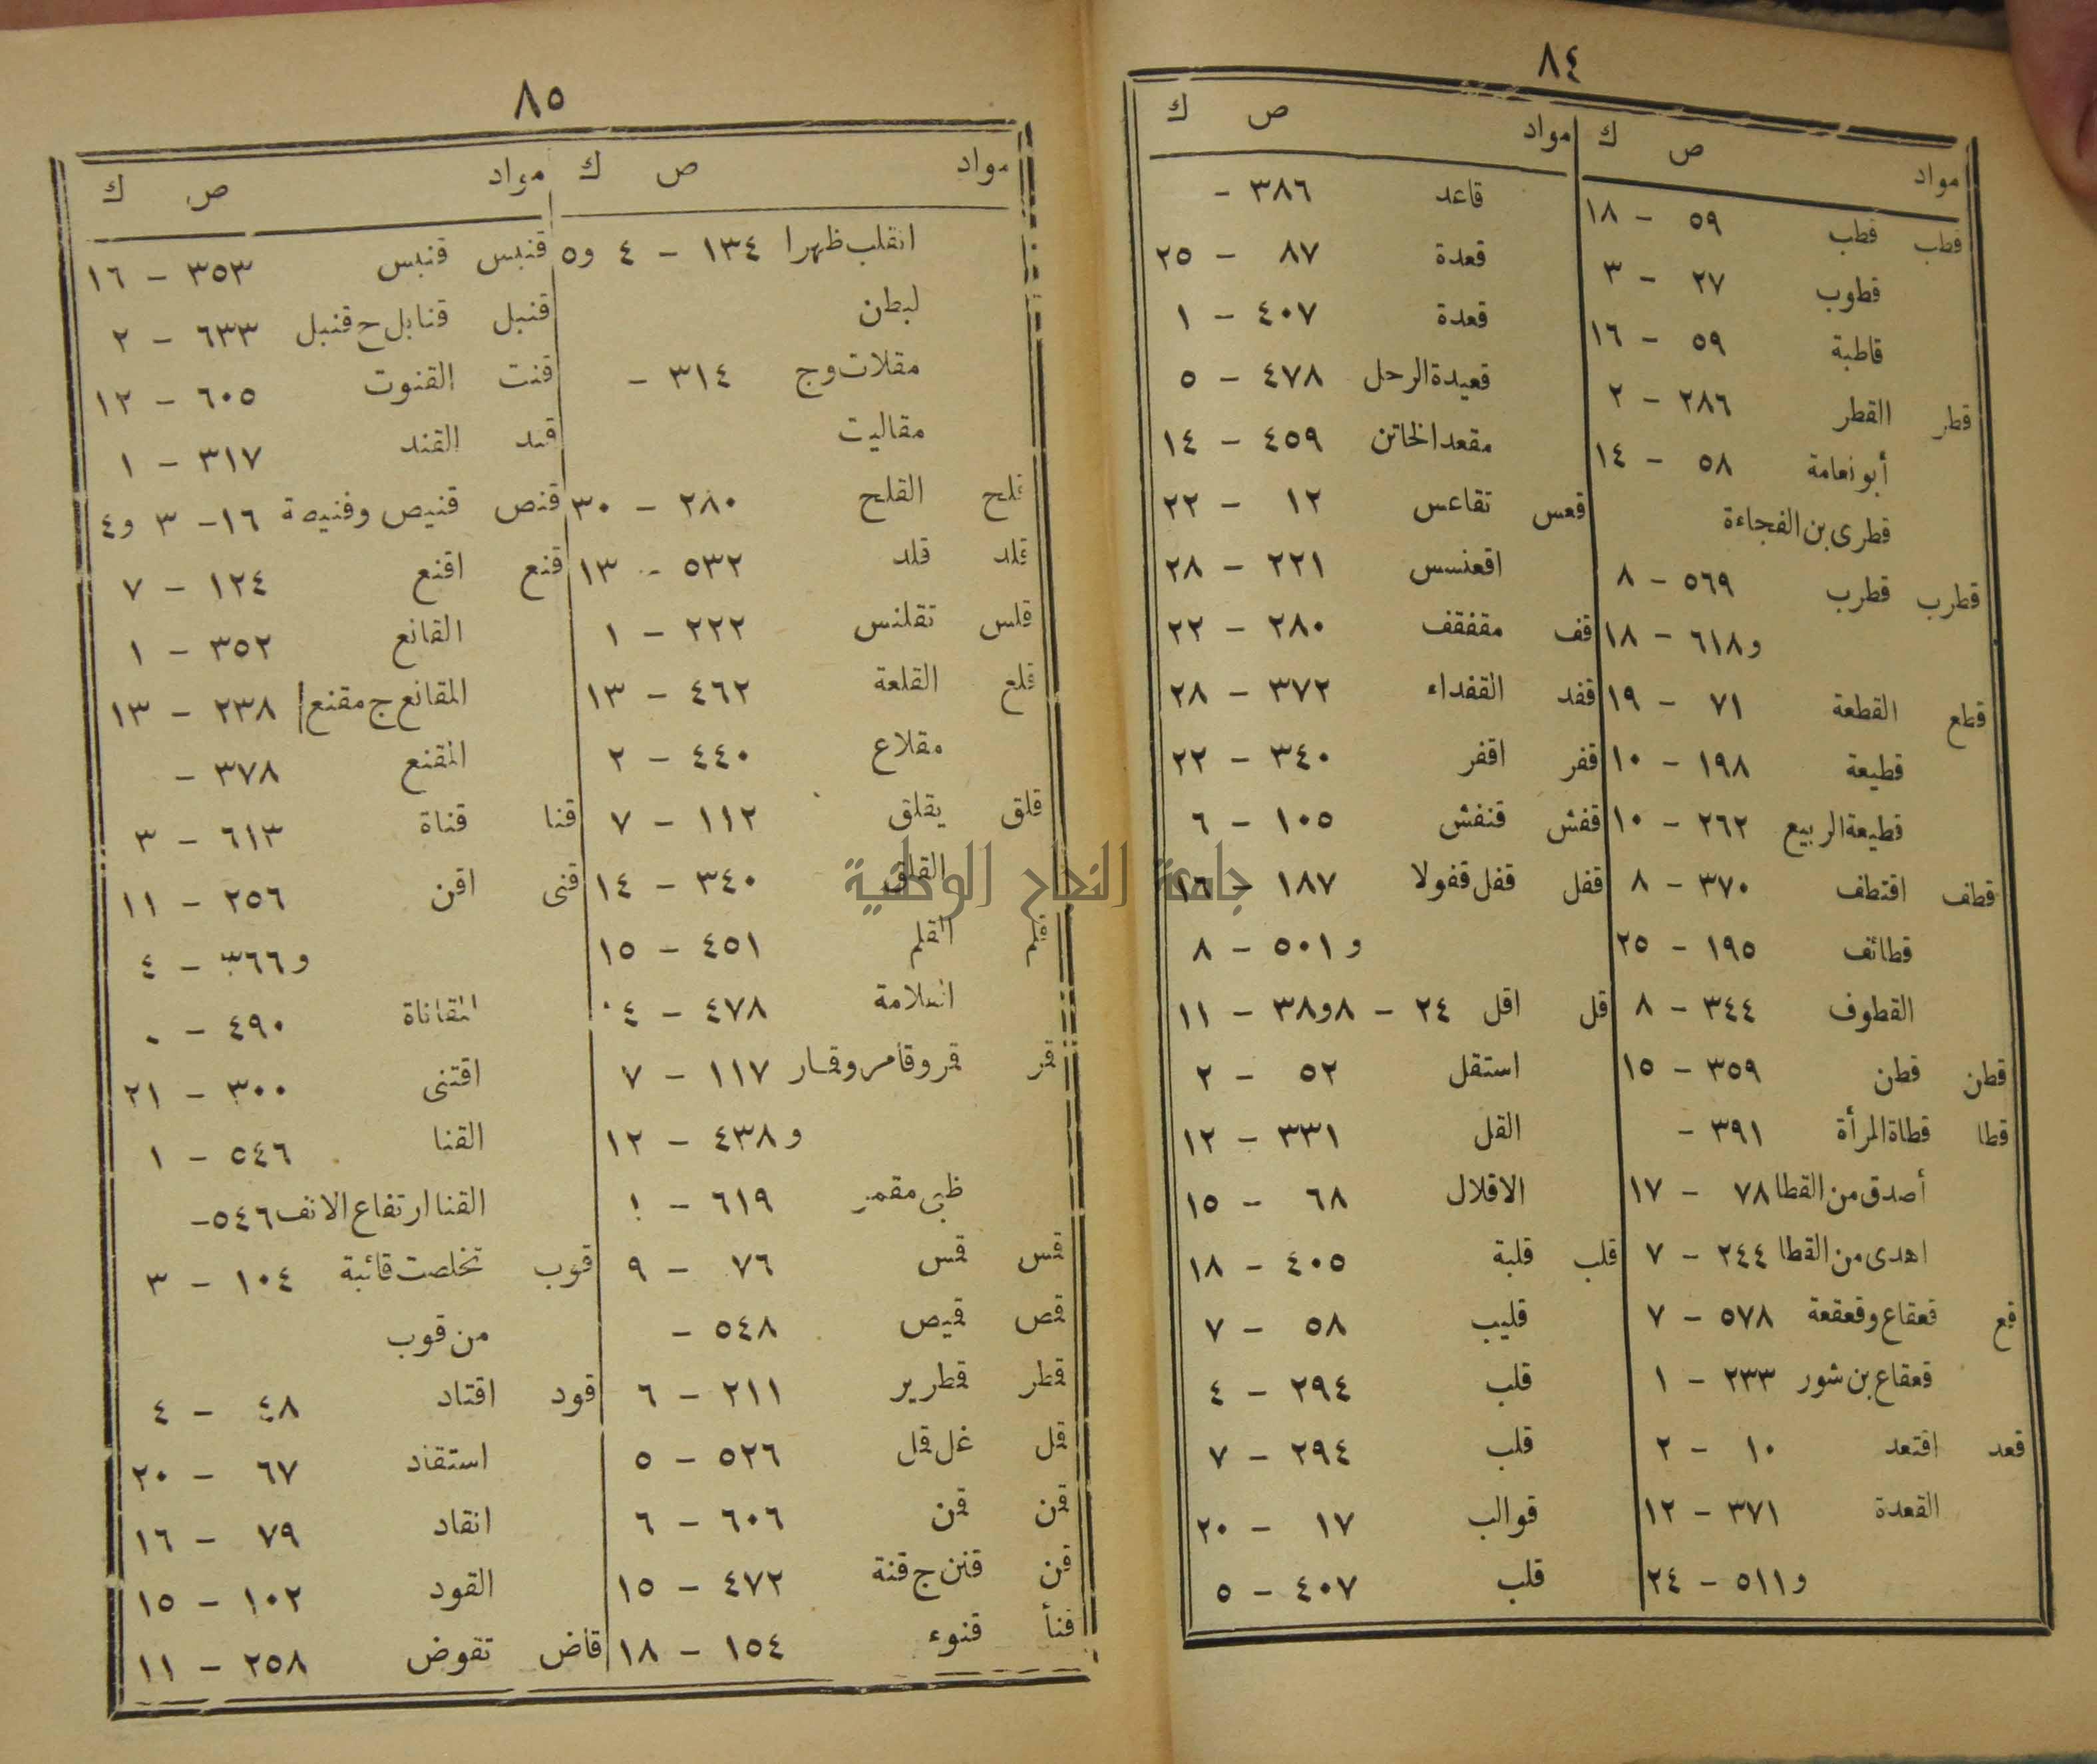 ٨٤
مواد ص ك
قطب قطب ٥٩ - ١٨
قطوب ٢٧ - ٣
قاطبة ٥٩ - ١٦
قطر القطر ٢٨٦ - ٢
أبو نعامة ٥٨ - ١٤
قطرى بن الفجاءة
قطرب قطرب ٥٦٩ - ٨
و٦١٨ - ١٨
قطع القطعة ٧١ - ١٩
قطيعة ١٩٨ - ١٠
قطيعة الربيع ٢٦٢ - ١٠
قطف اقتطف ٣٧٠ - ٨
قطائف ١٩٥ - ٢٥
القطوف ٣٤٤ - ٨
قطن قطن ٣٥٩ - ١٥
قطا قطاة المرأة ٣٩١ -
أصدق من القطا ٧٨ - ١٧
اهدى من القطا ٢٤٤ - ٧
قع قعقاع وقعقعة ٥٧٨ - ٧
قعقاع بن شور ٢٣٣ - ١
قعد اقتعد ١٠ - ٢
القعدة ٣٧١ - ١٢
و٥١١ - ٢٤
مواد ص ك
قاعد ٣٨٦ -
قعدة ٨٧ - ٢٥
قعدة ٤٠٧ - ١
قعيدة الرحل ٤٧٨ - ٥
مقعد الخاتن ٤٥٩ - ١٤
قعس تقاعس ١٢ - ٢٢
اقعنسس ٢٢١ - ٢٨
قف مقفقف ٢٨٠ - ٢٢
قفد القفداء ٣٧٢ - ٢٨
قفر اقفر ٣٤٠ - ٢٢
قفش قنفش ١٠٥ - ٦
قفل قفل قفولا ١٨٧ - ١٦
و٥٠١ - ٨
قل اقل ٢٤ - ٨ و٣٨ - ١١
استقل ٥٢ - ٢
القل ٣٣١ - ١٢
الاقلال ٦٨ - ١٥
قلب قلبة ٤٠٥ - ١٨
قليب ٥٨ - ٧
قلب ٢٩٤ - ٤
قلب ٢٩٤ - ٧
قوالب ١٧ - ٢٠
قلب ٤٠٧ - ٥
٨٥
مواد ص ك
انقلب ظهرا ١٣٤ - ٤ و٥
لبطن
مقلات وج ٣١٤ -
مقاليت
قلح القلح ٢٨٠ - ٣٠
قلد قلد ٥٣٢ - ١٣
قلس تقلنس ٢٢٢ - ١
قلع القلعة ٤٦٢ - ١٣
مقلاع ٤٤٠ - ٢
قلق يقلق ١١٢ - ٧
القلق ٣٤٠ - ١٤
قلم القلم ٤٥١ - ١٥
٤٧٨ - ٤
قمر قمر وقامر وقمار ١١٧ - ٧
و٤٣٨ - ١٢
ظبى مقمر ٦١٩ - ١
قمس قمس ٧٦ - ٩
قمص قميص ٥٤٨ -
قمطر قمطرير ٢١١ - ٦
قمل غل قمل ٥٢٦ - ٥
قمن قمن ٦٠٦ - ٦
قنن قنن ج قنة ٤٧٢ - ١٥
قنأ قنوء ١٥٤ - ١٨
مواد ص ك
قنبس قنبس ٣٥٣ - ١٦
قنبل قنابل ح قنبل ٦٣٣ - ٢
قنت القنوت ٦٠٥ - ١٢
قند القند ٣١٧ - ١
قنص قنيص وقنيصة ١٦ - ٣ و٤
قنع اقنع ١٢٤ - ٧
القانع ٣٥٢ - ١
المقانع ج مقنع ٢٣٨ - ١٣
المقنع ٣٧٨ -
قنا قناة ٦١٣ - ٣
قنى اقن ٢٥٦ - ١١
و٣٦٦ - ٤
المقاناة ٤٩٠ -
اقتنى ٣٠٠ - ٢١
القنا ٥٤٦ - ١
القنا ارتفاع الانف ٥٤٦ -
قوب تخلصت قائبة ١٠٤ - ٣
من قوب
قود اقتاد ٤٨ - ٤
استقاد ٦٧ - ٢٠
انقاد ٧٩ - ١٦
القود ١٠٢ - ١٥
قاض تقوض ٢٥٨ - ١١
جامعة النجاح الوطنية